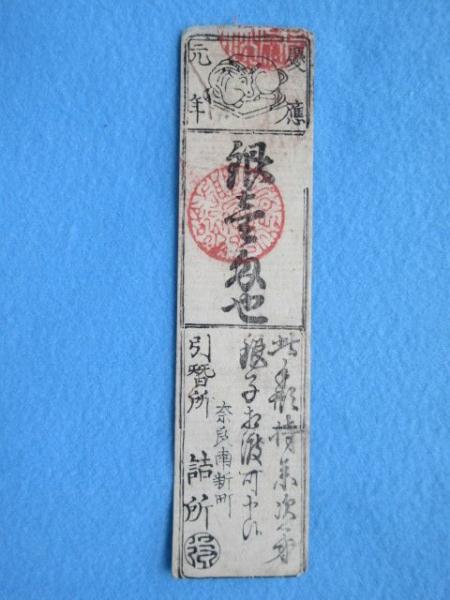 慶應
元年
銀壹匁也
此手形持参次第
銀子相渡可申候
奈良南新町
引替所 詰所